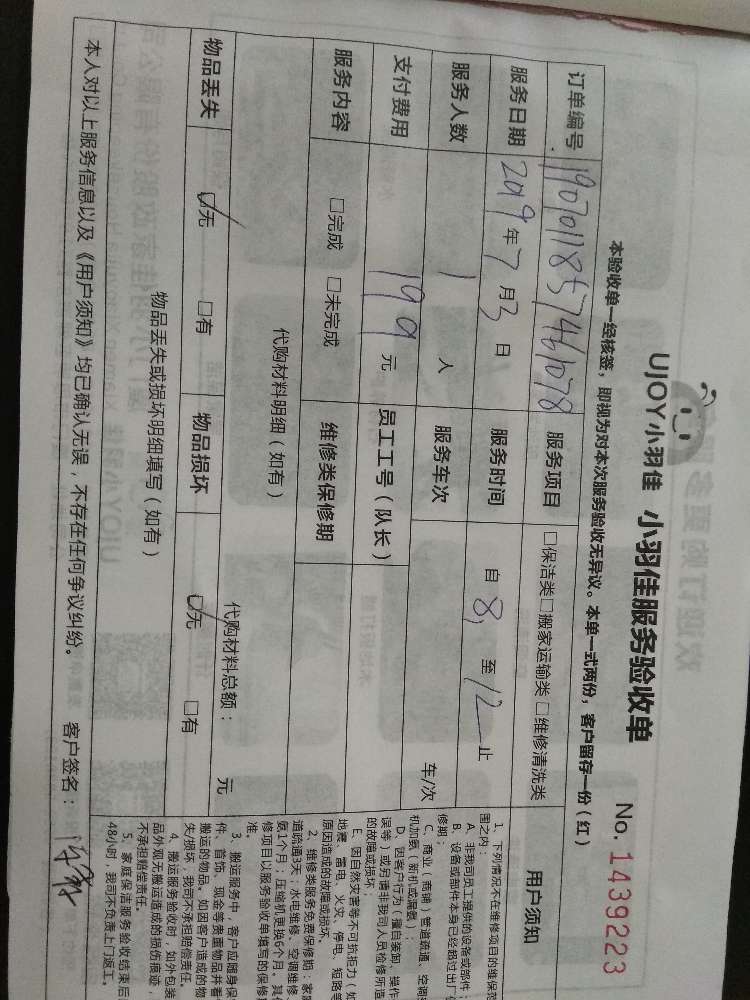 UJOY小羽佳 小羽佳服务验收单
No. 1439223
本验收单一经核签，即视为对本次服务验收无异议。本单一式两份，客户留存一份（红）
订单编号 服务项目 □保洁类□搬家运输类□维修清洗类
服务日期 2019年7月3日 服务时间 自 8 至 12 止
服务人数 1 人 服务车次 车/次
支付费用 199 元 员工工号（队长）
服务内容 □完成 □未完成 维修类保修期
代购材料明细（如有） 代购材料总额： 元
物品丢失 ☑无 □有 物品损坏 ☑无 □有
物品丢失或损坏明细填写（如有）
本人对以上服务信息以及《用户须知》均已确认无误，不存在任何争议纠纷。 客户签名：
用户须知
1、下列情况不在维修项目的维保范
围之内：
A、非我司员工提供的设备或部件；
B、设备或部件本身已经超过出厂
修期；
C、商业（商铺）管道疏通、空调
机加氨（新机或漏氨）；
D、因客户行为（擅自装卸、操作
误等）或另请非我司人员检修所造
的故障或损坏；
E、因自然灾害等不可抗拒力（如
地震、雷电、火灾、停电、短路等
原因造成的故障或损坏。
2、维修类服务免费保修期：家
道疏通3天；水电维修、空调维修
氨1个月；压缩机更换6个月。其
修项目以服务验收单填写的保修
准。
3、搬运服务中，客户应随身保
件、首饰、现金等贵重物品并看
搬运的物品，如因客户造成的物
失/损坏，我司不承担赔偿责任。
4、搬运服务验收时，如外包装
品外观无搬运造成的损伤痕迹，
不承担赔偿责任。
5、家庭保洁服务验收结束后
48小时，我司不负责上门返工。